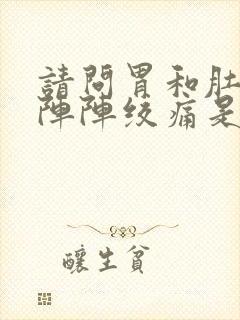 請問胃和肚
陣陣绞痛是
釀生貧